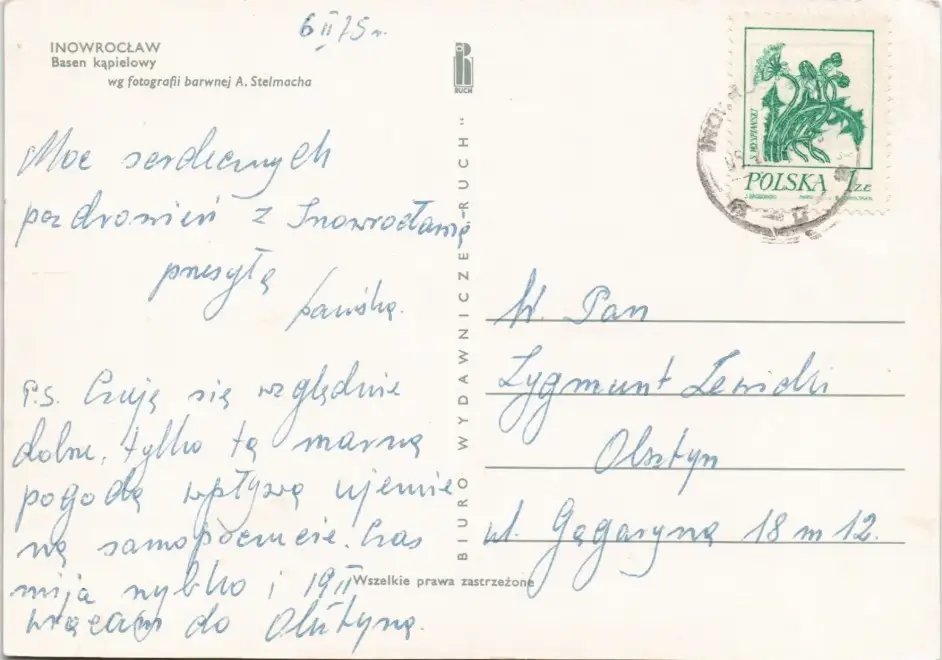 6 II 75 r.
INOWROCŁAW
Basen kąpielowy
wg fotografii barwnej A. Stelmacha
RUCH
Moc serdecznych
pozdrowień z Inowrocławia
przesyła
P.S. Czuję się względnie
dobrze, tylko ta marna
pogoda wpływa ujemnie
na samopoczucie. Czas
mija szybko i 19 II
wracam do Olsztyna.
BIURO WYDAWNICZE „RUCH"
Wszelkie prawa zastrzeżone
S. WYSPIAŃSKI
POLSKA 1 ZŁ
W. Pan
Zygmunt Lewicki
Olsztyn
ul. Gagaryna 18 m 12.